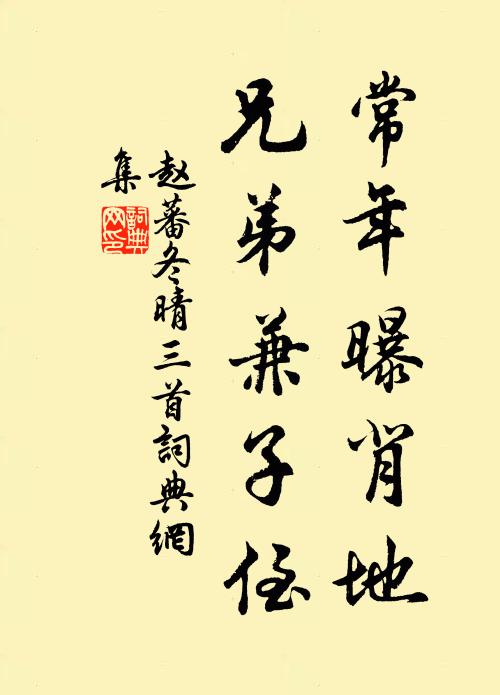 常年曝背地
兄弟兼子侄
赵蕃冬晴三首詞典網
集
詞典
网印